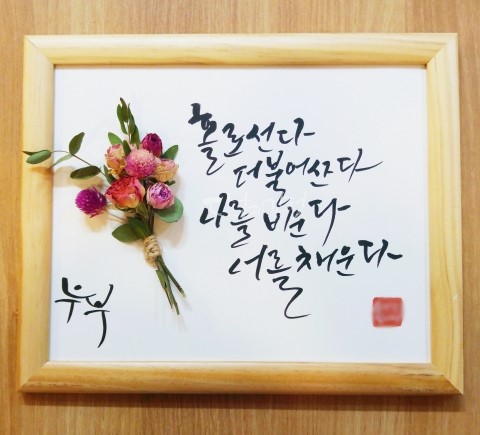 홀로선다
더불어산다
나를 비운다
너를 채운다
부부